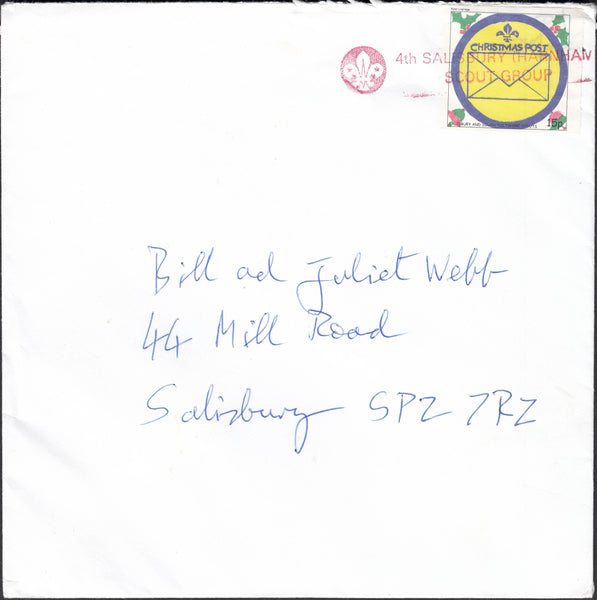 CHRISTMAS POST
4th SALISBURY (HARNHAM
SCOUT GROUP
15p
Bill ad Juliet Webb
44 Mill Road
Salisbury SP2 7RZ